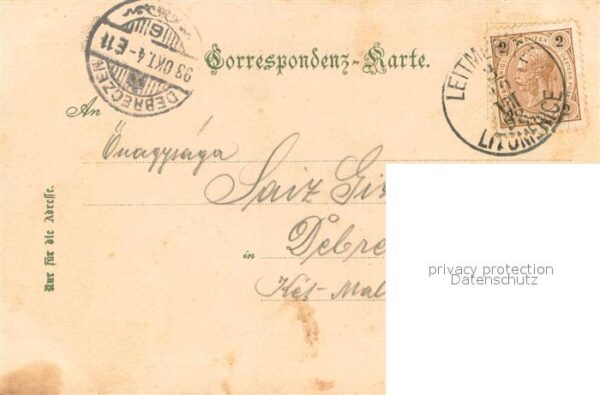 DEBRECZEN
98 OKT. 4 - E. 11
Correspondenz-Karte.
2 2
LEITM
LITOMĚŘICE
An
Őnagysága
Saiz
in Debre
Két-Mal
Nur für die Adresse.
privacy protection
Datenschutz